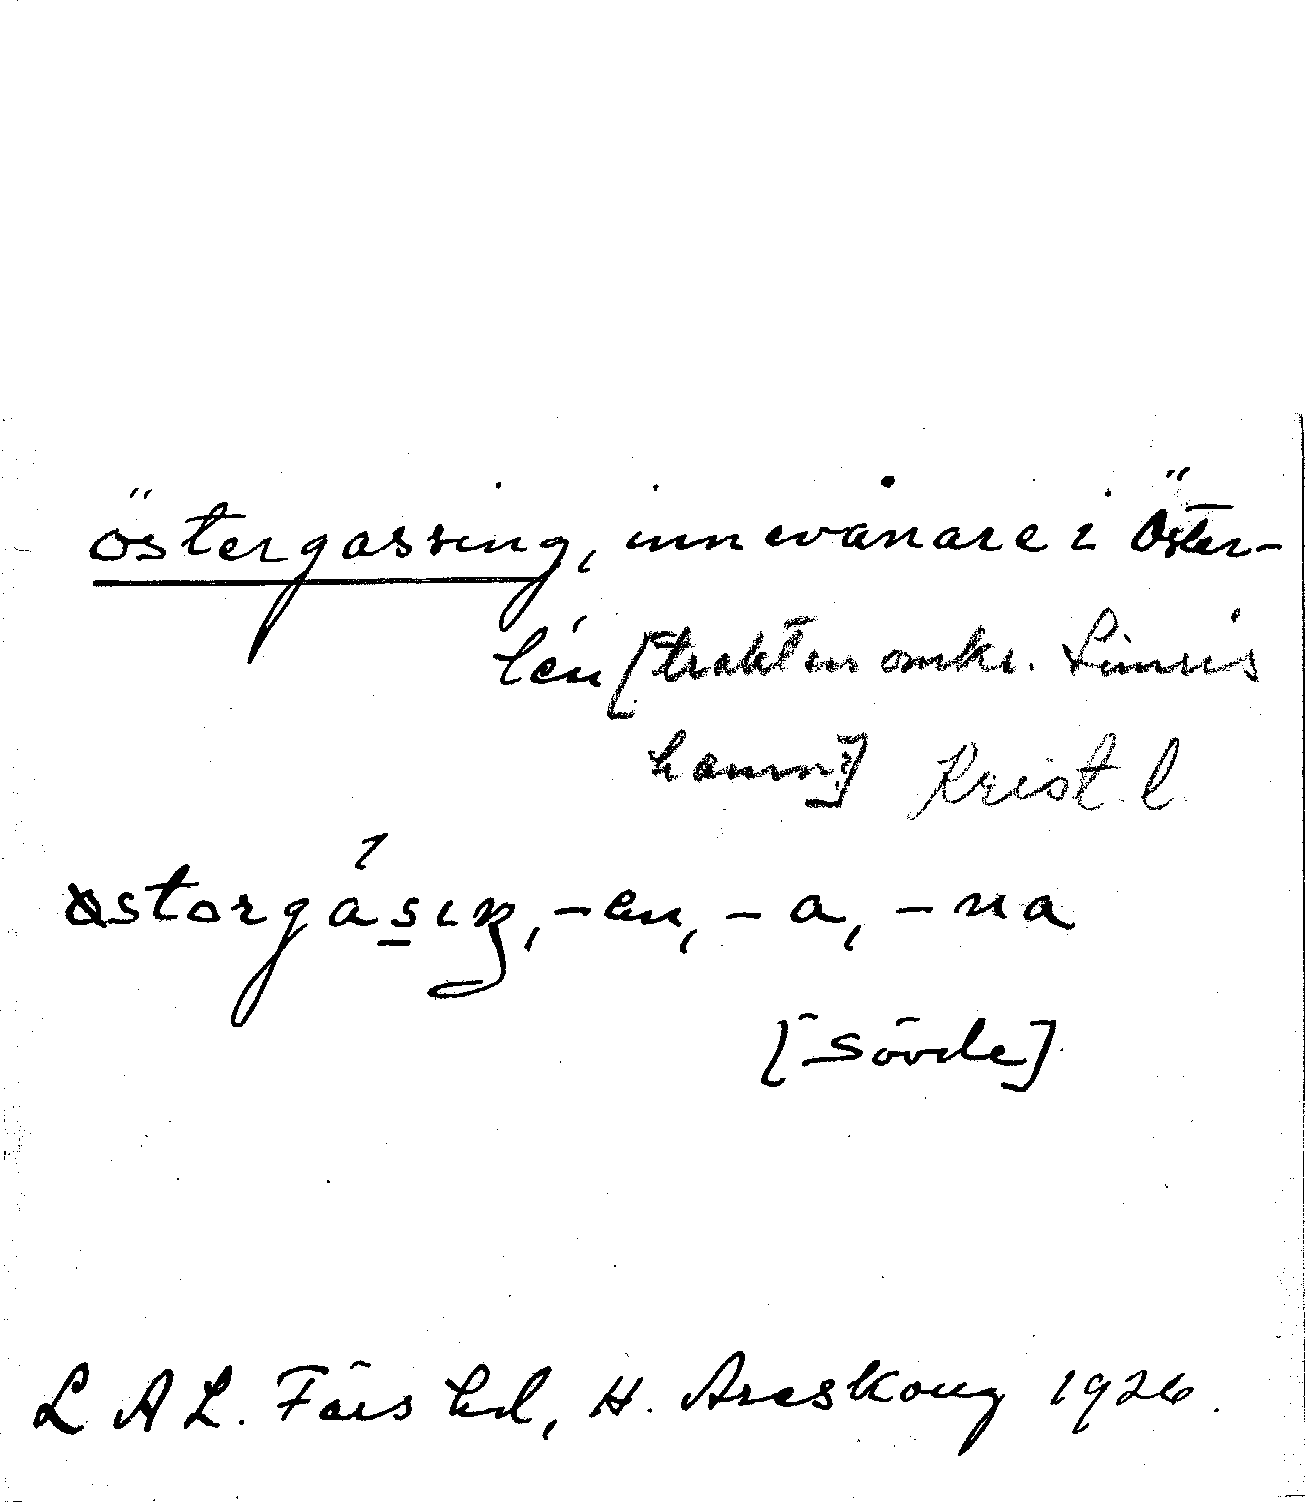 östergassing, innevånare i Öster-
lén [trakten omkr. Simris
hamn] Krist. l.
-en, -a, -na
[Sövde]
L A L. Färs hd, H. Areskoug 1926.